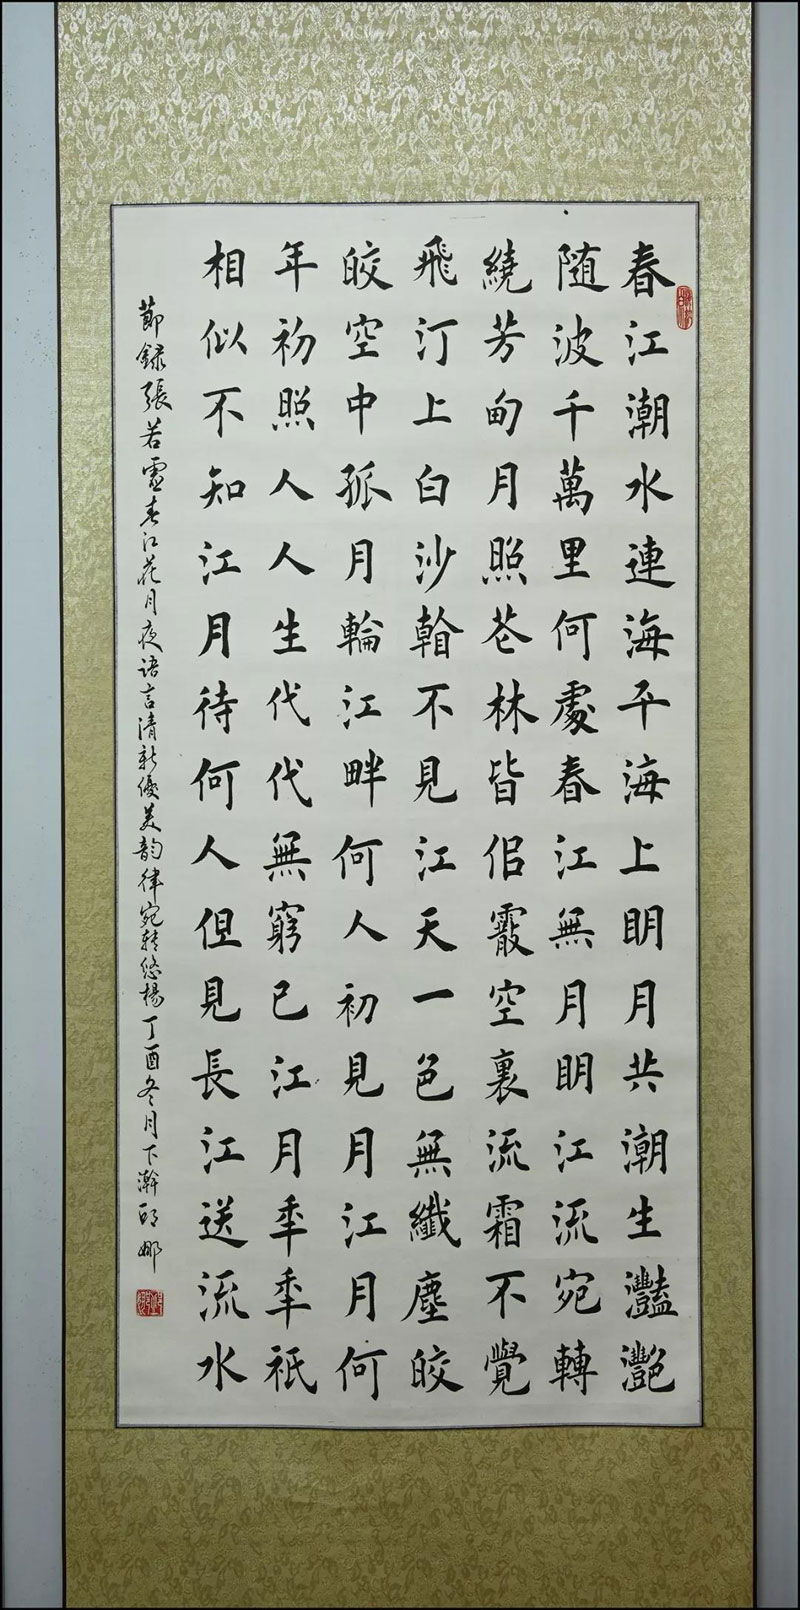 春江潮水連海平海上明月共潮生灩灧
随波千萬里何處春江無月明江流宛轉
繞芳甸月照芲林皆佀霰空裏流霜不覺
飛汀上白沙看不見江天一色無纖塵皎
皎空中孤月輪江畔何人初見月江月何
年初照人人生代代無窮已江月秊秊祇
相似不知江月待何人但見長江送流水
節録張若虛春江花月夜語言清新優美韵律宛转悠楊丁酉冬月下瀚邱娜